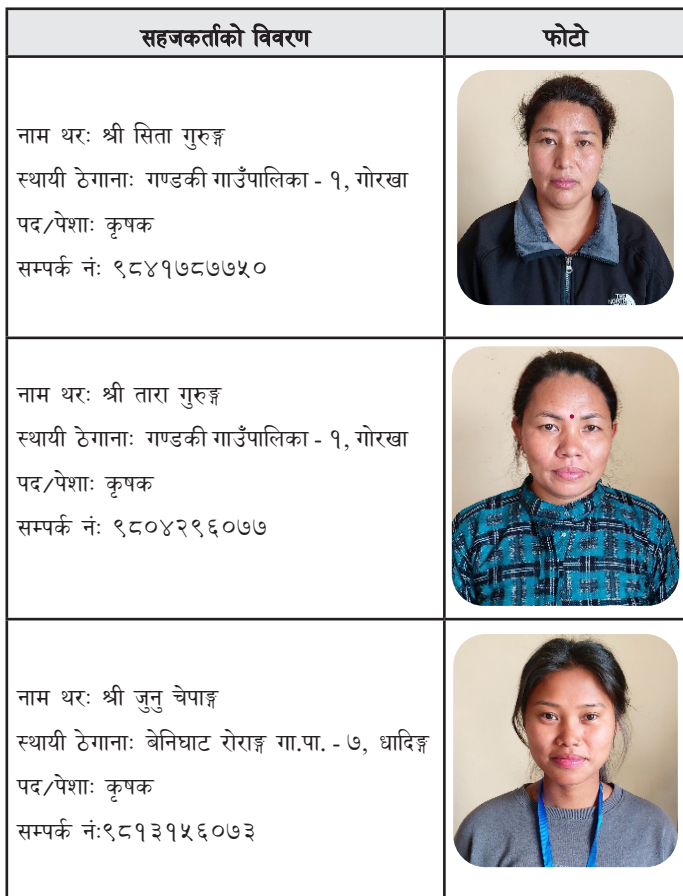 सहजकर्ताको विवरण
फोटो
नाम थरः श्री सिता गुरुङ्ग
स्थायी ठेगानाः गण्डकी गाउँपालिका - १, गोरखा
पद/पेशाः कृषक
सम्पर्क नंः ९८४१७८७७५०
THE
NORTH
नाम थरः श्री तारा गुरुङ्ग
स्थायी ठेगानाः गण्डकी गाउँपालिका - १, गोरखा
पद/पेशाः कृषक
सम्पर्क नंः ९८०४२९६०७७
नाम थरः श्री जुनु चेपाङ्ग
स्थायी ठेगानाः बेनिघाट रोराङ्ग गा.पा. - ७, धादिङ्ग
पद/पेशाः कृषक
सम्पर्क नंः९८१३१५६०७३